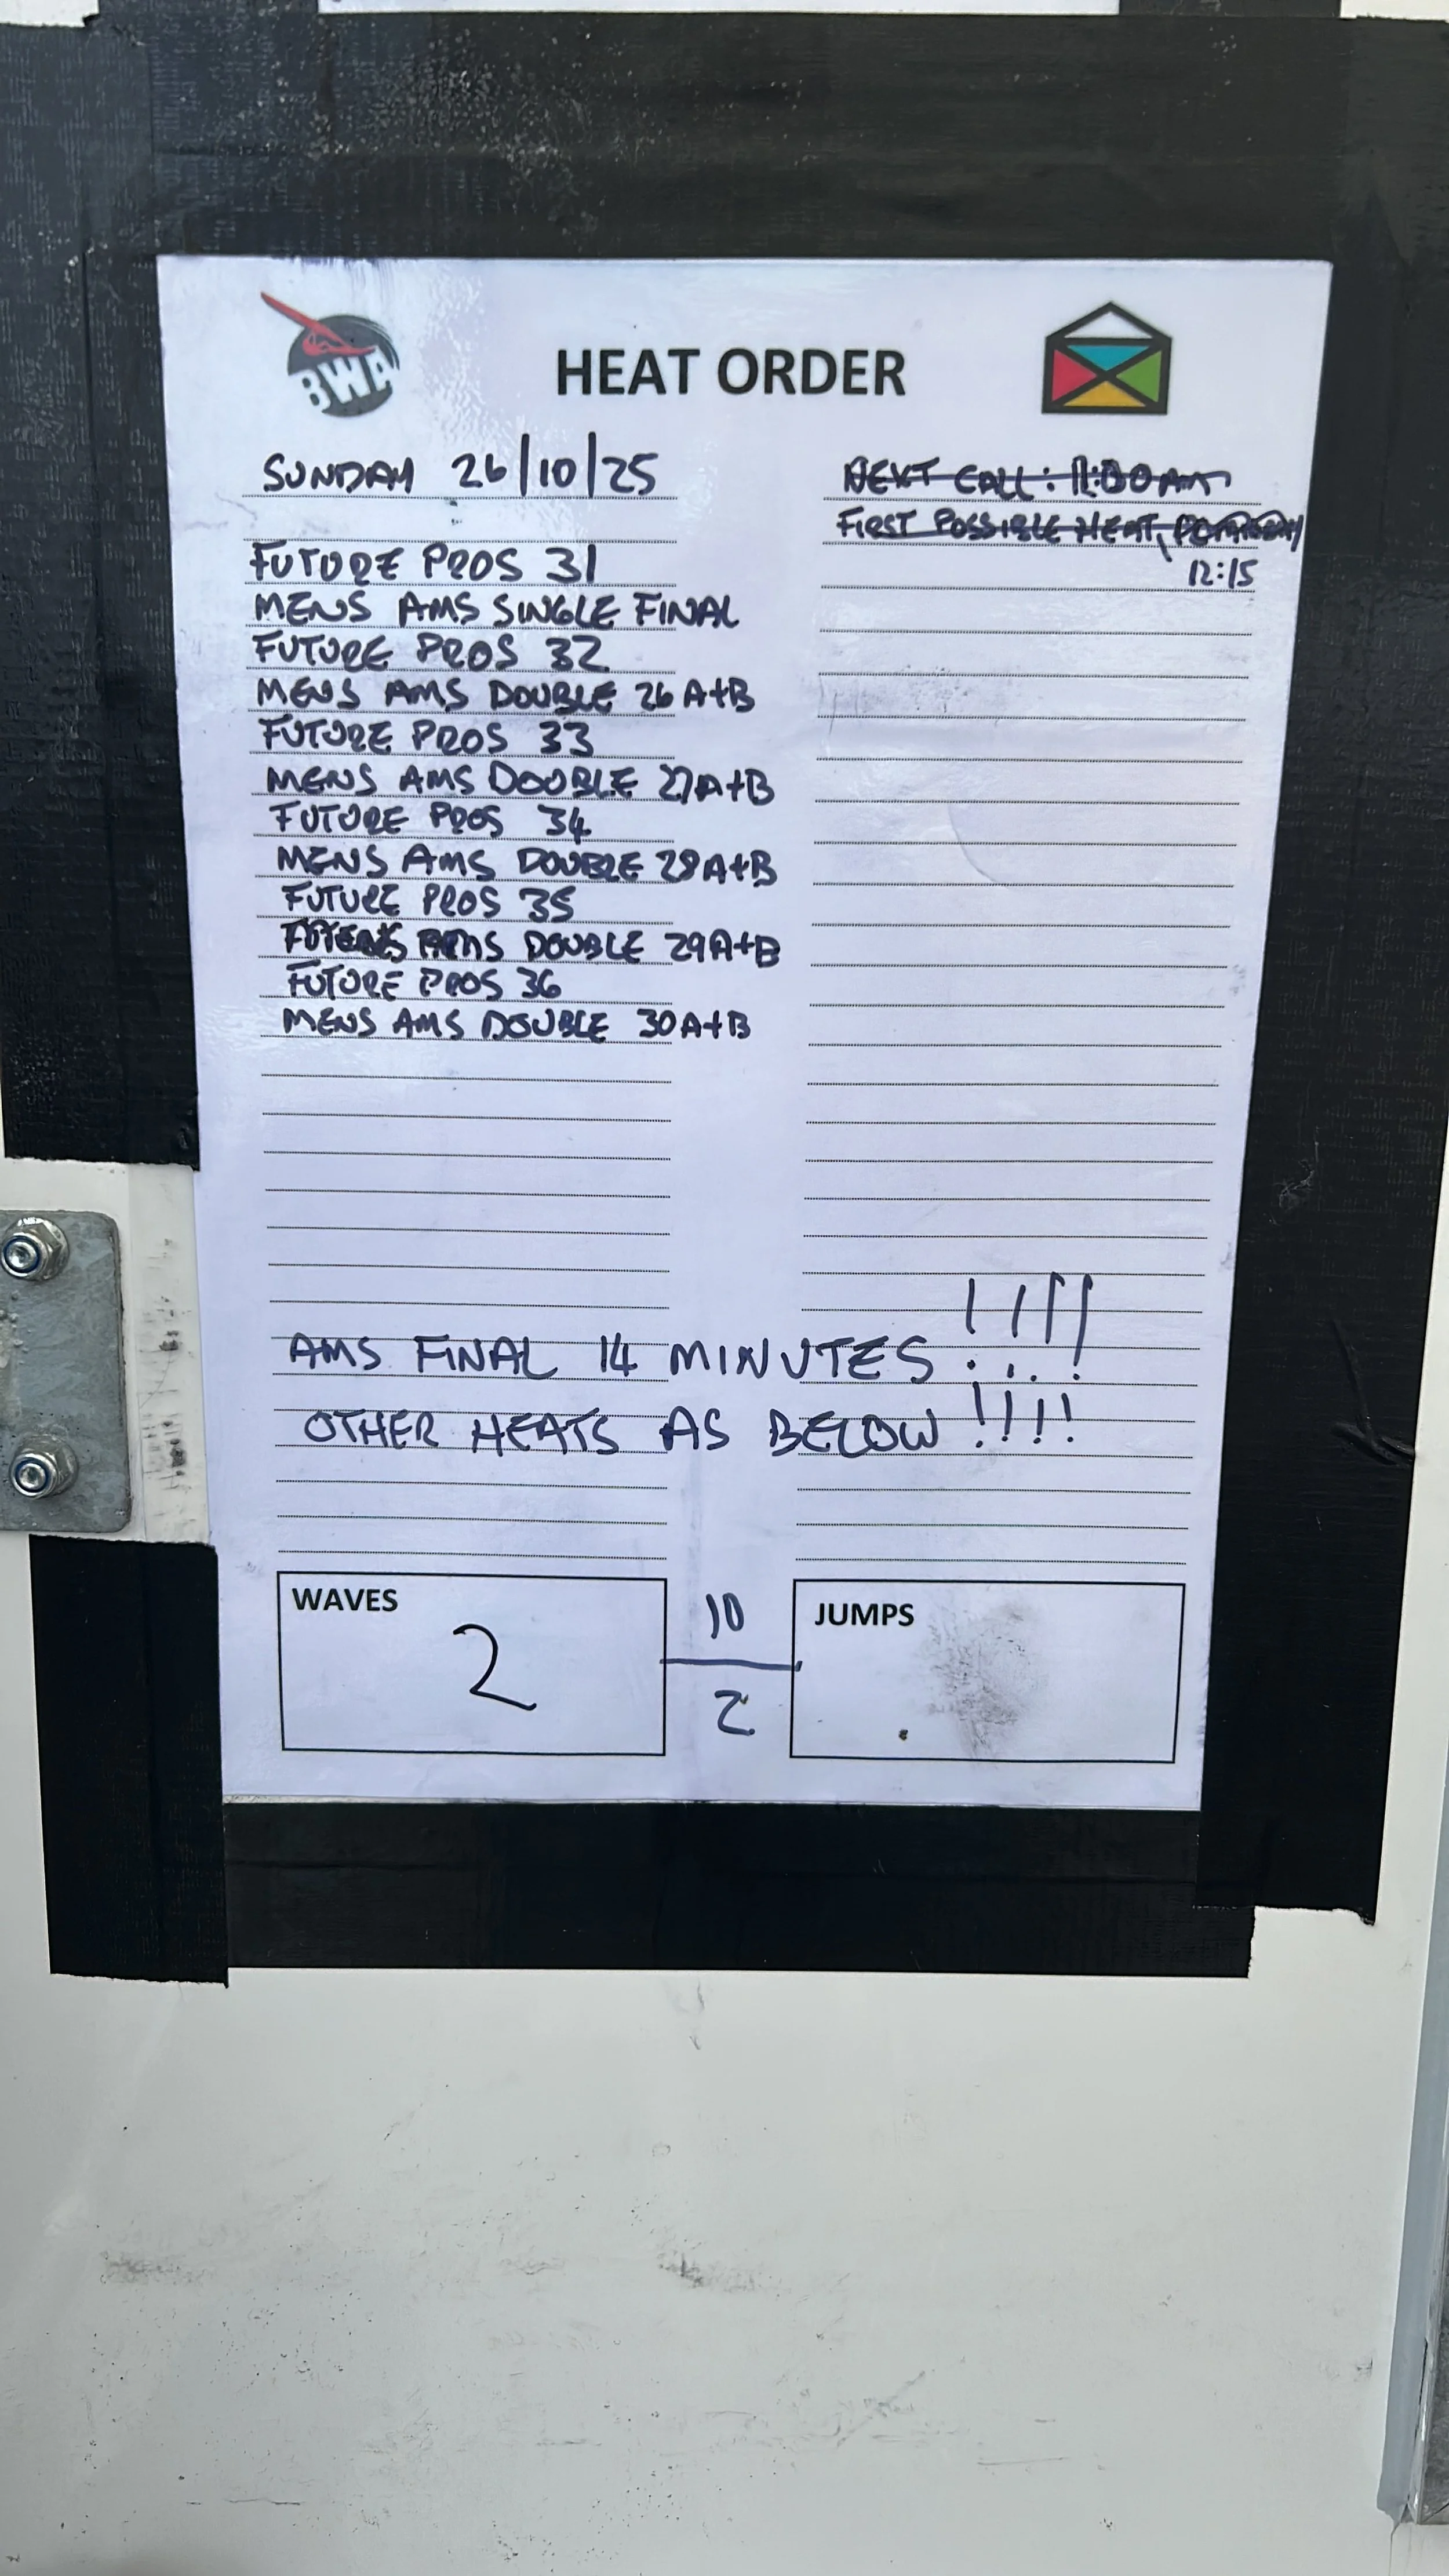 BWA
HEAT ORDER
SUNDAY 26/10/25
FUTURE PROS 31
MENS AMS SINGLE FINAL
FUTURE PROS 32
MENS AMS DOUBLE 26 A+B
FUTURE PROS 33
MENS AMS DOUBLE 27A+B
FUTURE PROS 34
MENS AMS DOUBLE 28A+B
FUTURE PROS 35
MENS AMS DOUBLE 29A+B
FUTURE PROS 36
MENS AMS DOUBLE 30A+B
NEXT CALL: 11:00AM
FIRST POSSIBLE HEAT
12:15
AMS FINAL 14 MINUTES !!!!
OTHER HEATS AS BELOW !!!!
WAVES
2
10
2
JUMPS